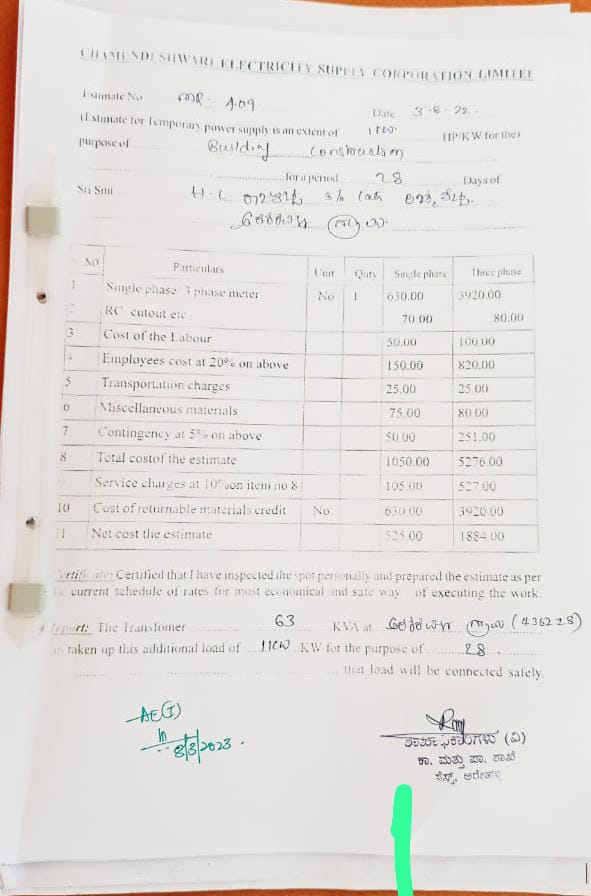 CHAMUNDESHWARI ELECTRICITY SUPPLY CORPORATION LIMITEL
Estimate No 409
Date 3-8-22.
(Estimate for Temporary power supply is an extent of 1KW HP/KW for the)
purpose of Building Construction
for a period 28 Days of
Sri/Smt H.C s/o Late
NO Particulars Unit Qnty Single phase Three phase
1 Single phase/ 3 phase meter No 1 630.00 3920.00
2 RC cutout etc 70.00 80.00
3 Cost of the Labour 50.00 100.00
4 Employees cost at 20% on above 150.00 820.00
5 Transportation charges 25.00 25.00
6 Miscellaneous materials 75.00 80.00
7 Contingency at 5% on above 50.00 251.00
8 Total costof the estimate 1050.00 5276.00
Service charges at 10%on item no 8 105.00 527.00
10 Cost of returnable materials credit No 630.00 3920.00
11 Net cost the estimate 525.00 1884.00
Certificate: Certified that I have inspected the spot personally and prepared the estimate as per
current schedule of rates for most economical and safe way of executing the work
Report: The Transfomer 63 KVA at (436228)
taken up this additional load of 11CW KW for the purpose of 28.
that load will be connected safely.
AE(I)
8/3/2023.
ಶಾಖಾಧಿಕಾರಿಗಳು (ವಿ)
ಕಾ. ಮತ್ತು ಪಾ. ಶಾಖೆ
ಸೆಸ್ಕ್, ಅರೇಹಳ್ಳಿ